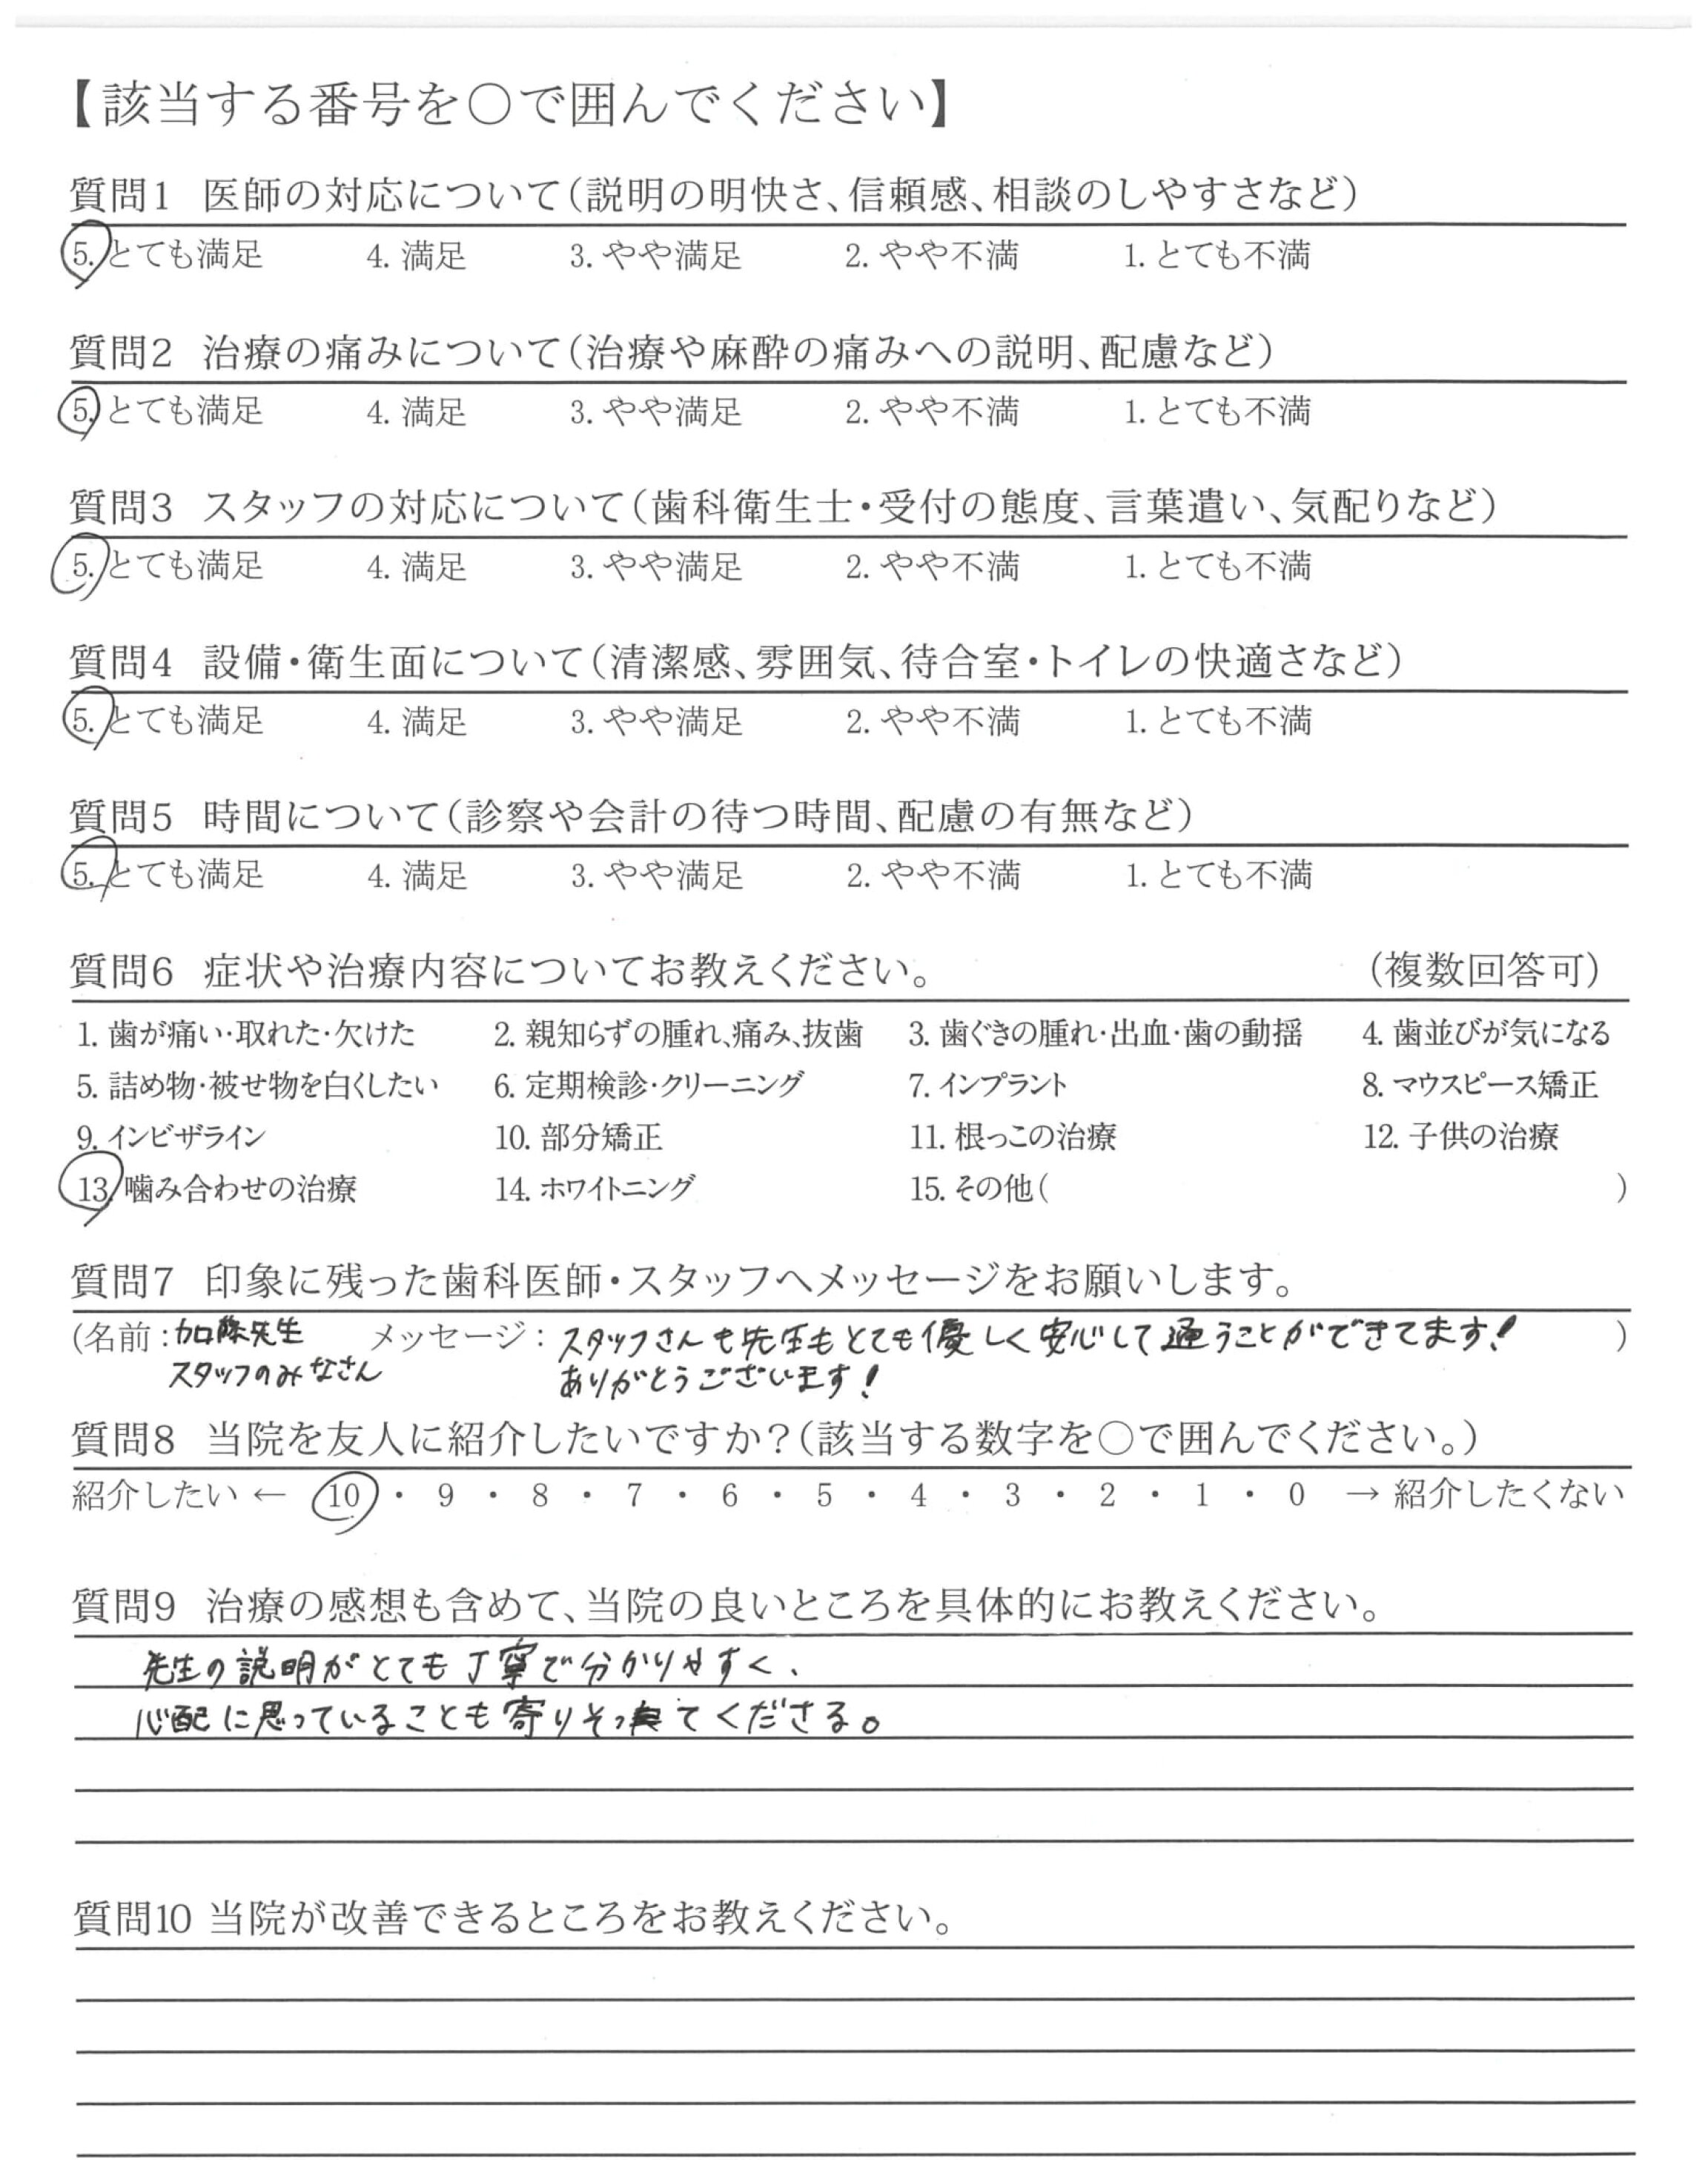 【該当する番号を○で囲んでください】
質問1 医師の対応について(説明の明快さ、信頼感、相談のしやすさなど)
5. とても満足 4. 満足 3. やや満足 2. やや不満 1. とても不満
質問2 治療の痛みについて(治療や麻酔の痛みへの説明、配慮など)
5. とても満足 4. 満足 3. やや満足 2. やや不満 1. とても不満
質問3 スタッフの対応について(歯科衛生士・受付の態度、言葉遣い、気配りなど)
5. とても満足 4. 満足 3. やや満足 2. やや不満 1. とても不満
質問4 設備・衛生面について(清潔感、雰囲気、待合室・トイレの快適さなど)
5. とても満足 4. 満足 3. やや満足 2. やや不満 1. とても不満
質問5 時間について(診察や会計の待つ時間、配慮の有無など)
5. とても満足 4. 満足 3. やや満足 2. やや不満 1. とても不満
質問6 症状や治療内容についてお教えください。 (複数回答可)
1. 歯が痛い・取れた・欠けた 2. 親知らずの腫れ、痛み、抜歯 3. 歯ぐきの腫れ・出血・歯の動揺 4. 歯並びが気になる
5. 詰め物・被せ物を白くしたい 6. 定期検診・クリーニング 7. インプラント 8. マウスピース矯正
9. インビザライン 10. 部分矯正 11. 根っこの治療 12. 子供の治療
13. 噛み合わせの治療 14. ホワイトニング 15. その他( )
質問7 印象に残った歯科医師・スタッフへメッセージをお願いします。
(名前:加藤先生 メッセージ:スタッフさんも先生もとても優しく安心して通うことができてます! )
スタッフのみなさん ありがとうございます!
質問8 当院を友人に紹介したいですか?(該当する数字を○で囲んでください。)
紹介したい ← 10 ・ 9 ・ 8 ・ 7 ・ 6 ・ 5 ・ 4 ・ 3 ・ 2 ・ 1 ・ 0 → 紹介したくない
質問9 治療の感想も含めて、当院の良いところを具体的にお教えください。
先生の説明がとても丁寧で分かりやすく、
心配に思っていることも寄りそってくださる。
質問10 当院が改善できるところをお教えください。